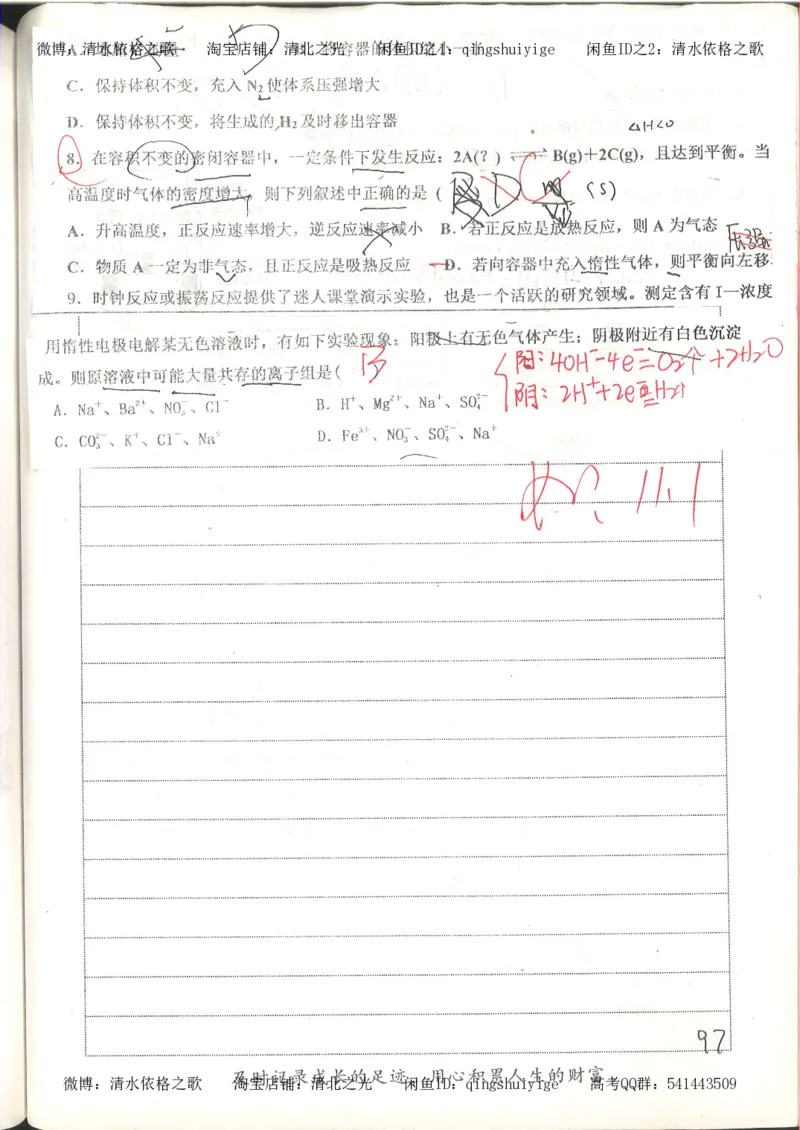 微博：清水依格之歌 淘宝店铺：清北之光 闲鱼ID之1：qingshuiyige 闲鱼ID之2：清水依格之歌
C．保持体积不变，充入 N₂ 使体系压强增大
D．保持体积不变，将生成的 H₂ 及时移出容器
△H<0
8．在容积不变的密闭容器中，一定条件下发生反应：2A(？) ⇌ B(g)＋2C(g)，且达到平衡。当
高温度时气体的密度增大，则下列叙述中正确的是（ D C m/V (s)
A．升高温度，正反应速率增大，逆反应速率减小 B．若正反应是放热反应，则 A 为气态
C．物质 A 一定为非气态，且正反应是吸热反应 D．若向容器中充入惰性气体，则平衡向左移
9．时钟反应或振荡反应提供了迷人课堂演示实验，也是一个活跃的研究领域。测定含有 I—浓度
用惰性电极电解某无色溶液时，有如下实验现象：阳极上有无色气体产生；阴极附近有白色沉淀
成。则原溶液中可能大量共存的离子组是( B
阳：4OH⁻-4e⁻=O₂↑+2H₂O
阴：2H⁺+2e⁻=H₂↑
A．Na⁺、Ba²⁺、NO₃⁻、Cl⁻ B．H⁺、Mg²⁺、Na⁺、SO₄²⁻
C．CO₃²⁻、K⁺、Cl⁻、Na⁺ D．Fe³⁺、NO₃⁻、SO₄²⁻、Na⁺
11.1
97
及时记录成长的足迹 用心积累人生的财富
微博：清水依格之歌 淘宝店铺：清北之光 闲鱼ID：qingshuiyige 高考QQ群：541443509